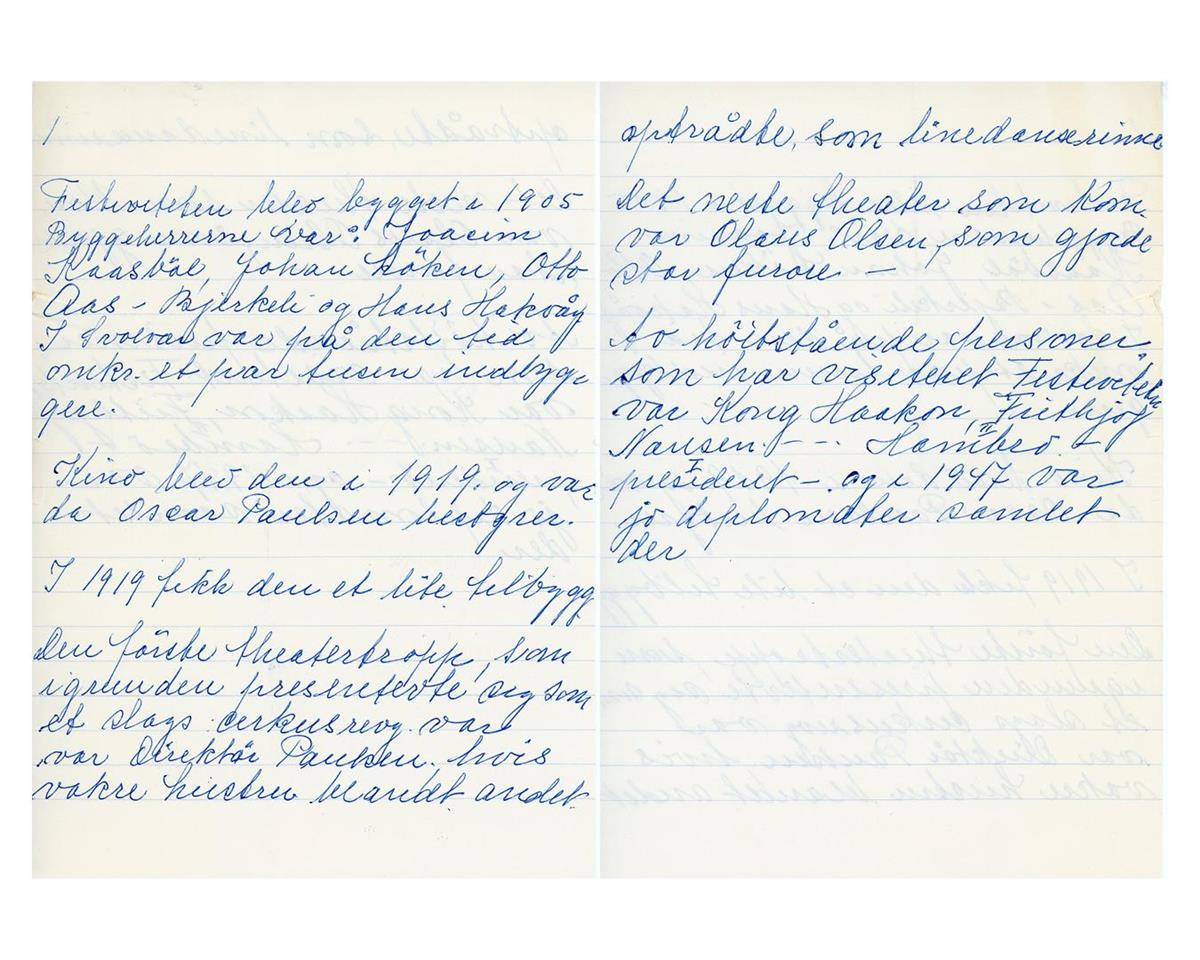 1
Festiviteten blev bygget i 1905
Byggeherrerne var: Joacim
Kaasböl, Johan Köken, Otto
Aas - Bjerkeli og Hans Hakvåg
I Svolvær var på den tid
omkr. et par tusen indbyg-
gere.
Kino blev den i 1919. og var
da Oscar Paulsen bestyrer.
I 1919 fikk den et lite tilbygg
Den förste theatertropp, som
igrunden presenterte sig som
et slags cerkusreog. var
var Direktör Paulsen. hvis
vakre hustru blandt andet
optrådte, som linedanserinne
Det neste theater som kom
var Olaus Olsen, som gjorde
stor furore -
Av höitstående personer
som har visiteret Festiviteten
var Kong Haakon, Frithjof
Nansen. - - - Hambro II -
president I - og i 1947 var
jo diplomater samlet
der